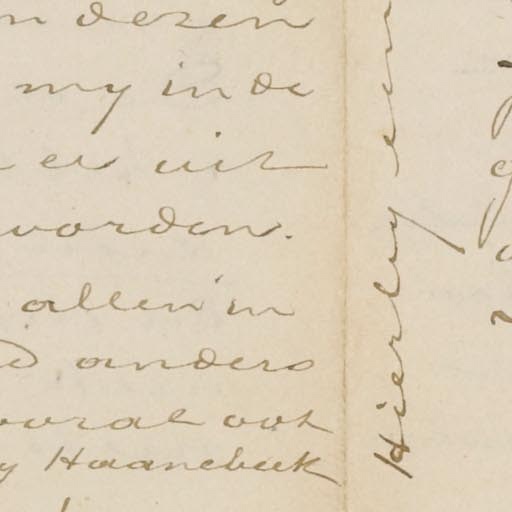 n dezen
my in de
er uit
worden.
allen in
d anders
vooral ook
y Haanebeek
Hierby een